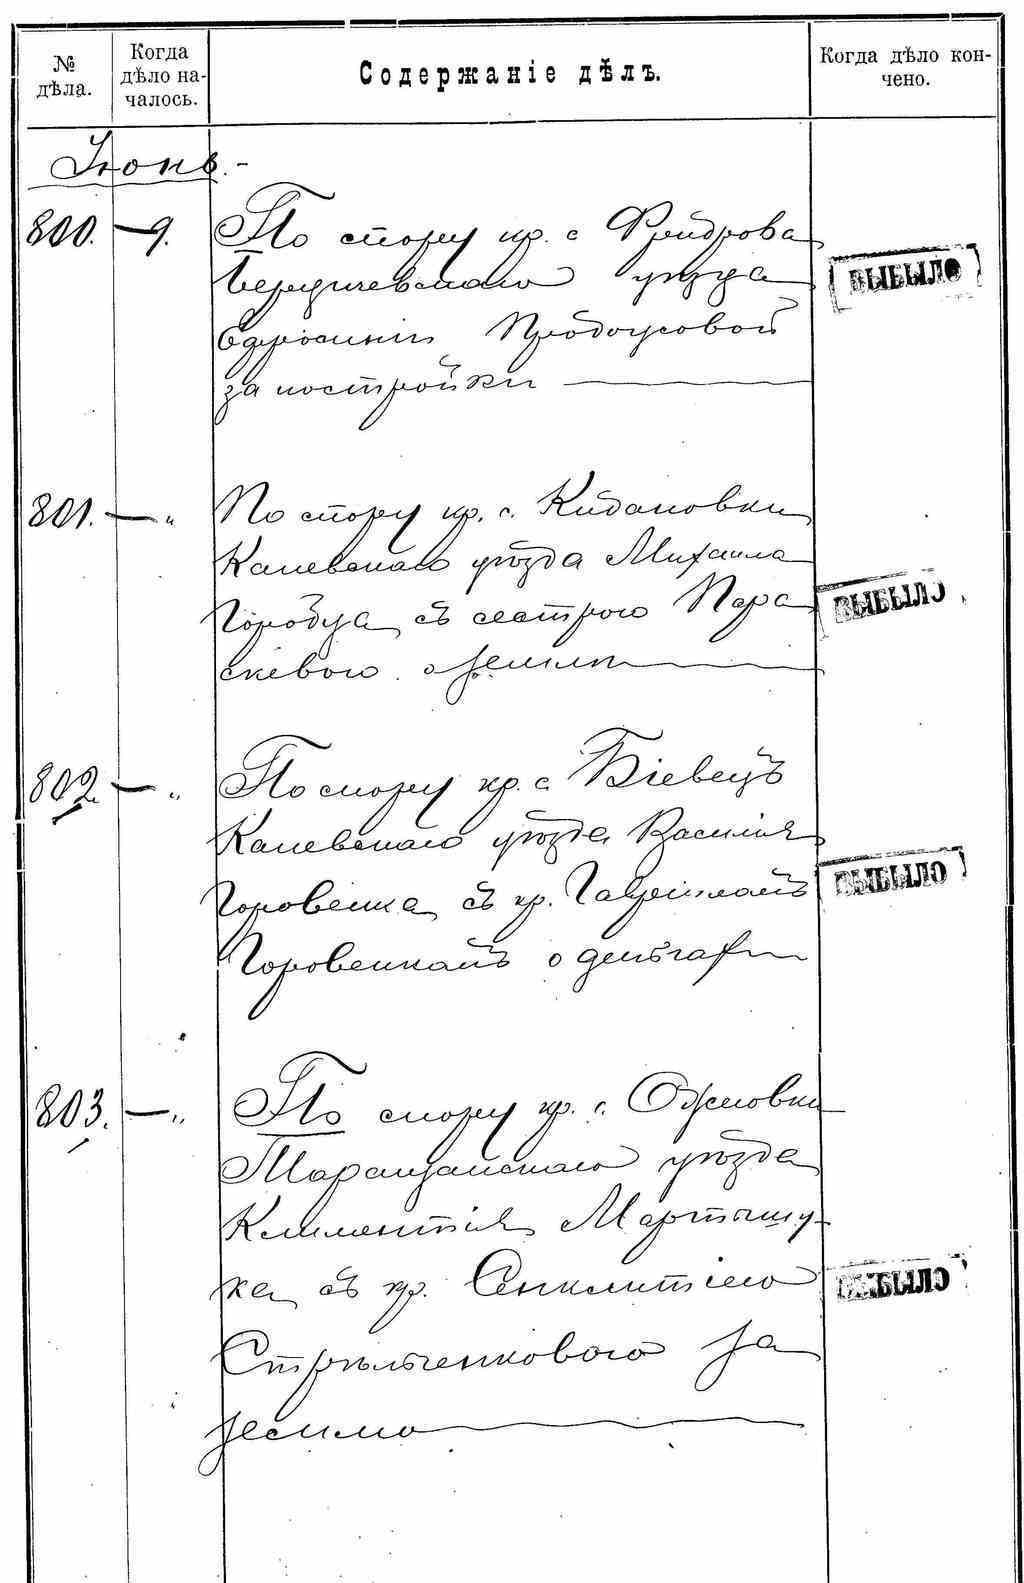 № дѣла.
Когда дѣло на-
чалось.
Содержаніе дѣлъ.
Когда дѣло кон-
чено.
Іюнь.-
800. — 9. По спору кр. с
Бердичевскаго уѣзда
Ефросиніи
за постройки —
ВЫБЫЛО
801. — " По спору кр. с. Кидановки
Каневскаго уѣзда Михаила
съ сестрою Пара
скевою о землѣ —
ВЫБЫЛО
802. — " По спору кр. с. Біевецъ
Каневскаго уѣзда Василія
Горовенка съ кр. Гавріиломъ
Горовенкомъ о деньгах
ВЫБЫЛО
803. — " По спору кр. с.
Таращанскаго уѣзда
Климентія Мартышу-
ка съ кр. Синклитіею
Стрѣльченковою за
землю —
ВЫБЫЛО